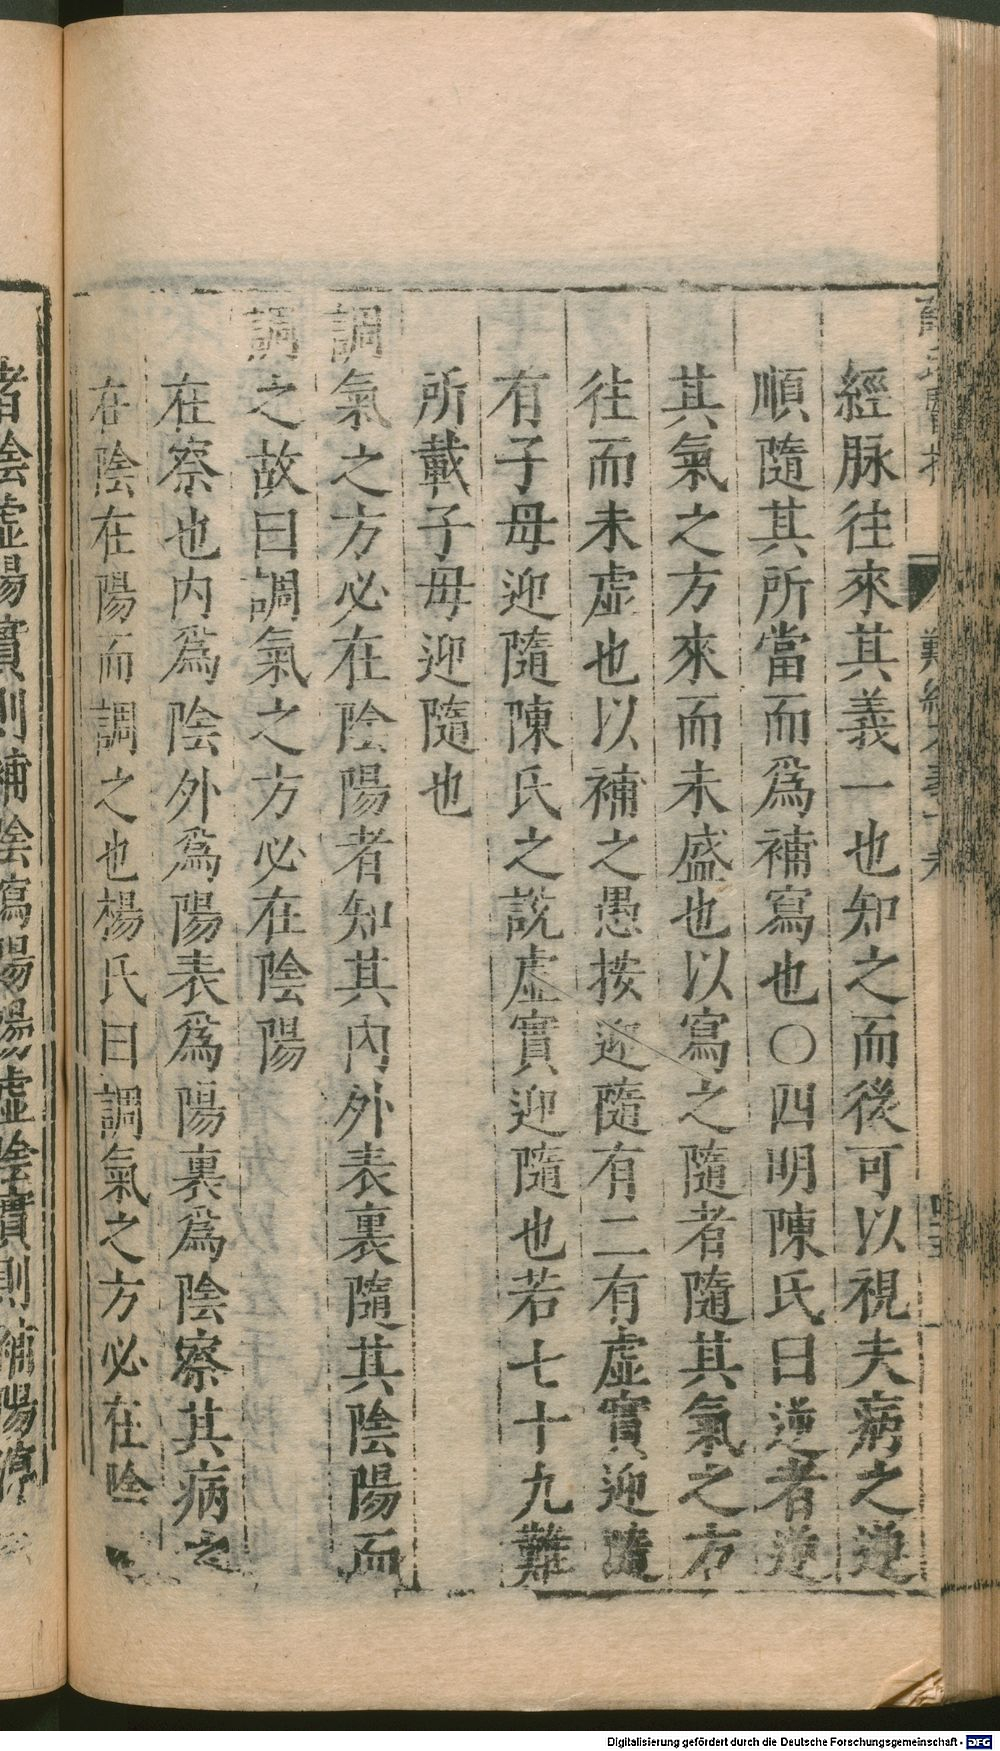 經脉往來其義一也知之而後可以視夫病之逆
順隨其所當而爲補寫也〇四明陳氏曰逆者逆
其氣之方來而未盛也以寫之隨者隨其氣之方
往而未虛也以補之愚按迎隨有二有虛實迎隨
有子母迎隨陳氏之說虛實迎隨也若七十九難
所載子母迎隨也
調氣之方必在陰陽者知其內外表裏隨其陰陽而
調之故曰調氣之方必在陰陽
在察也內爲陰外爲陽表爲陽裏爲陰察其病之
在陰在陽而調之也楊氏曰調氣之方必在陰
諸陰虛陽實則補陰寫陽陽虛陰實則補陽
Digitalisierung gefördert durch die Deutsche Forschungsgemeinschaft - DFG